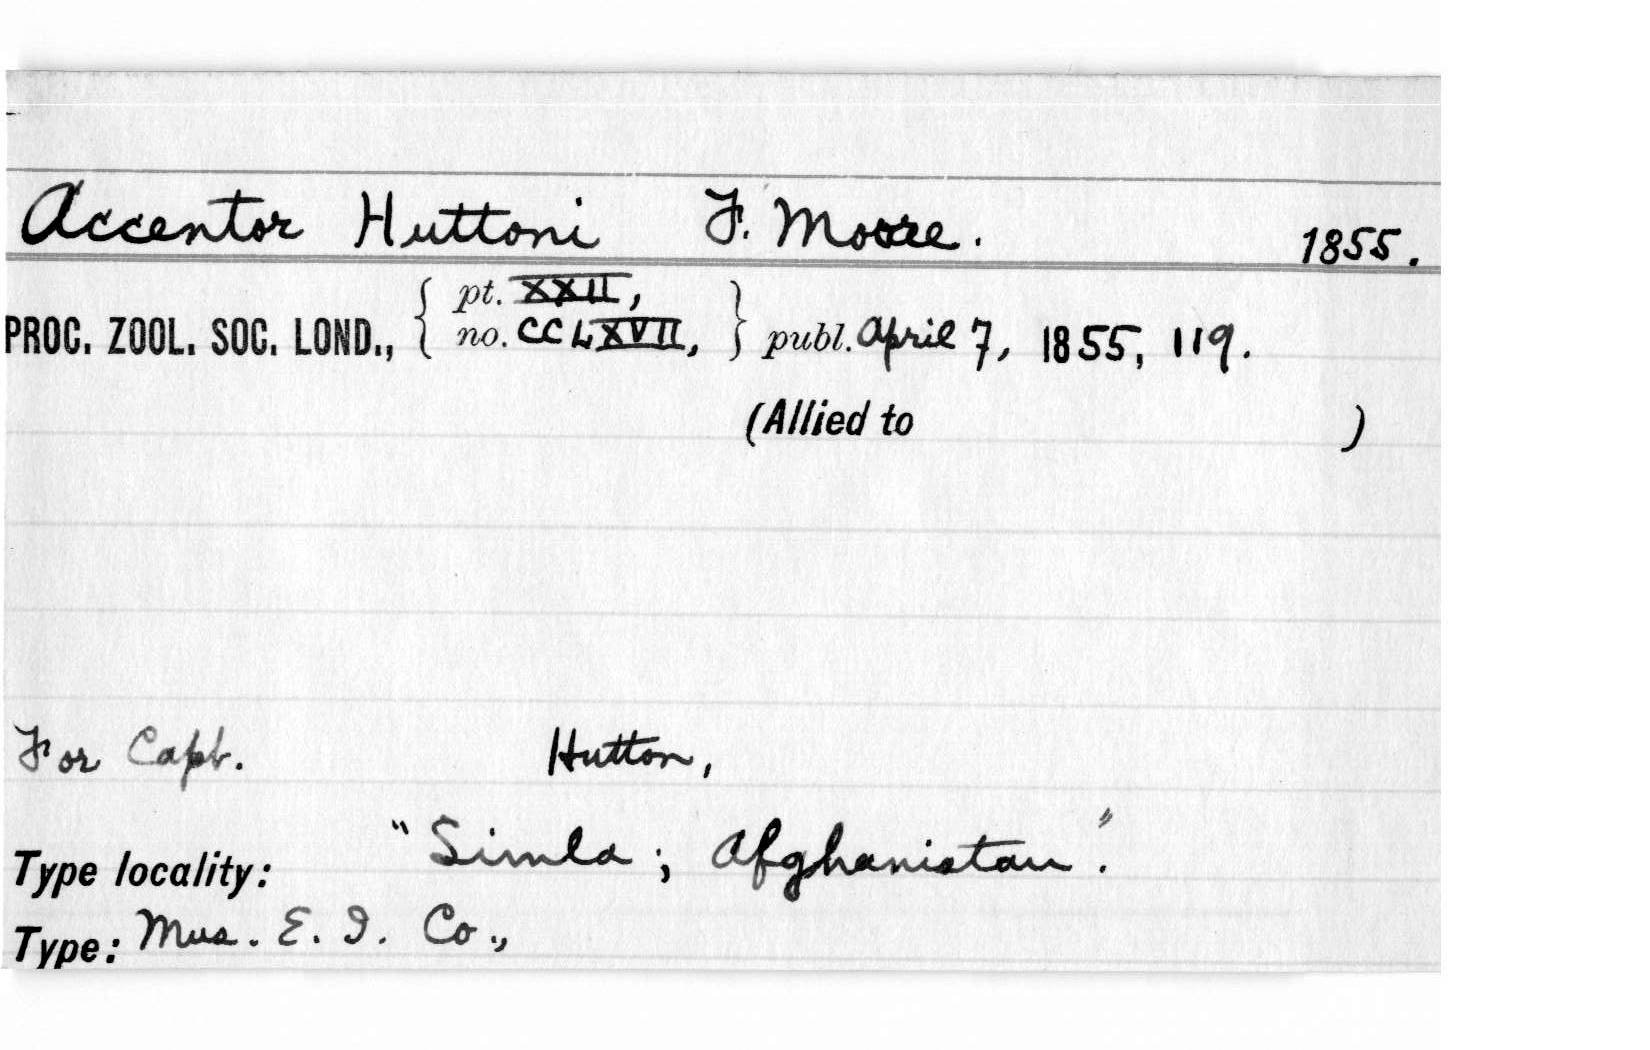 Accentor Huttoni F. Moore. 1855.
PROC. ZOOL. SOC. LOND., { pt. XXII, no. CCLXVII, } publ. April 7, 1855, 119.
(Allied to )
For Capt. Hutton,
Type locality: "Simla; Afghanistan."
Type: Mus. E. I. Co.,